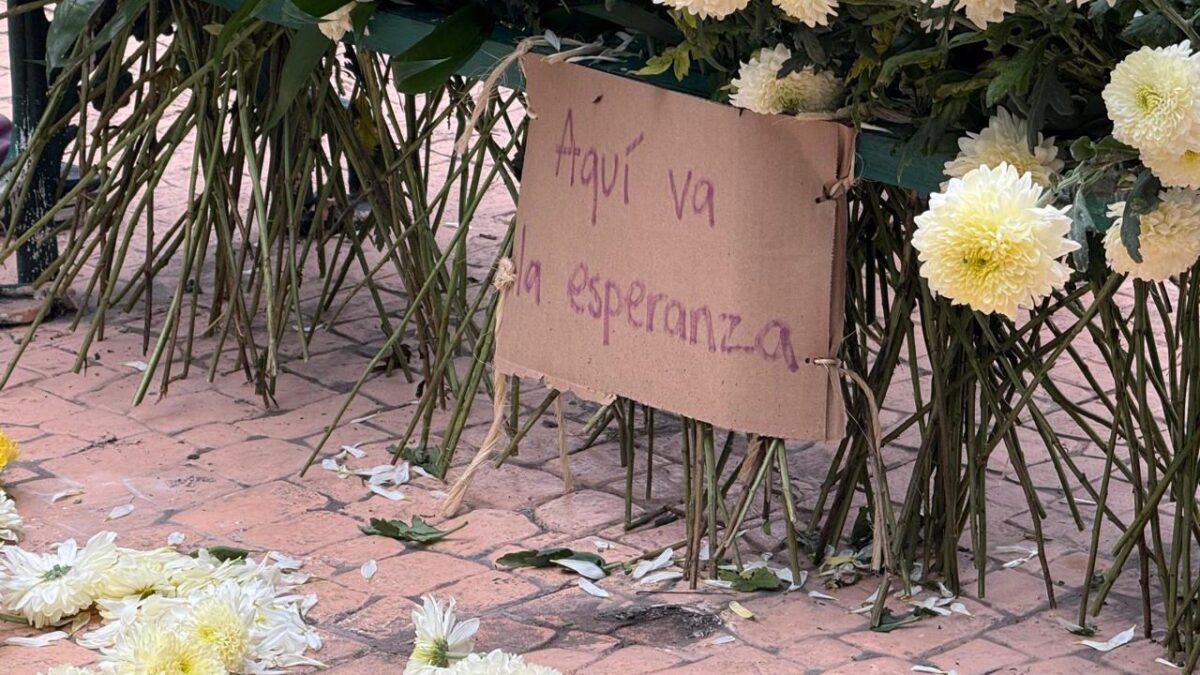 Aquí va
la esperanza